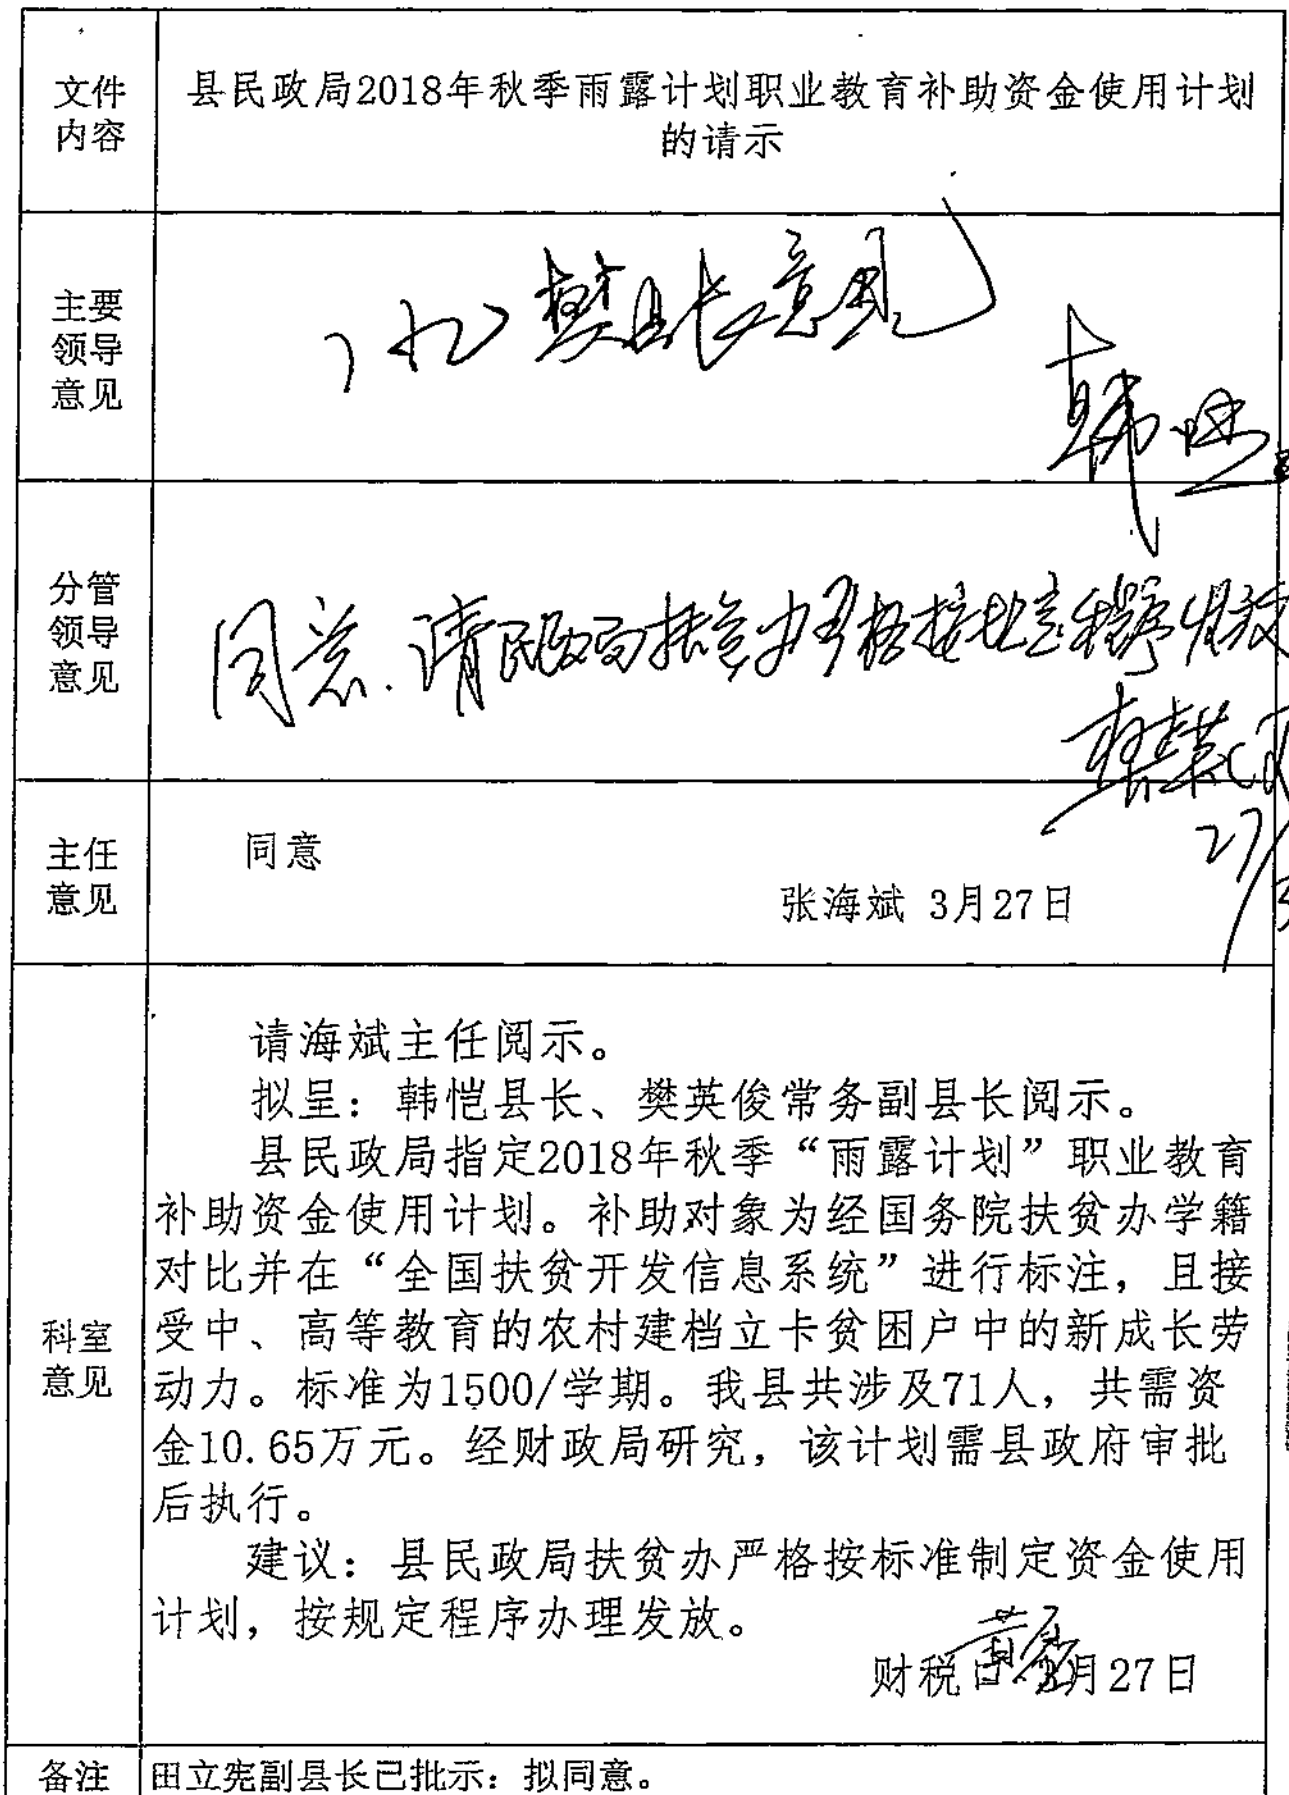 文件
内容
县民政局2018年秋季雨露计划职业教育补助资金使用计划
的请示
主要
领导
意见
樊县长意见
韩恺
分管
领导
意见
同意.请民政局扶贫办严格按规定程序发放
樊英俊
27/3
主任
意见
同意
张海斌 3月27日
科室
意见
请海斌主任阅示。
拟呈：韩恺县长、樊英俊常务副县长阅示。
县民政局指定2018年秋季“雨露计划”职业教育
补助资金使用计划。补助对象为经国务院扶贫办学籍
对比并在“全国扶贫开发信息系统”进行标注，且接
受中、高等教育的农村建档立卡贫困户中的新成长劳
动力。标准为1500/学期。我县共涉及71人，共需资
金10.65万元。经财政局研究，该计划需县政府审批
后执行。
建议：县民政局扶贫办严格按标准制定资金使用
计划，按规定程序办理发放。
财税口 3月27日
备注
田立宪副县长已批示：拟同意。